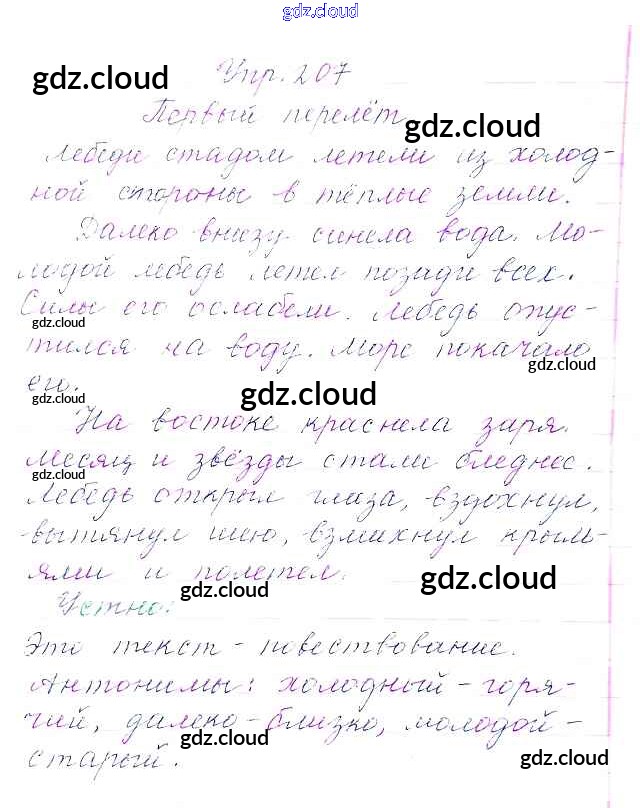 gdz.cloud
Упр. 207
gdz.cloud
Первый перелёт.
gdz.cloud
Лебеди стадом летели из холод-
ной стороны в тёплые земли.
Далеко внизу синела вода. Мо-
лодой лебедь летел позади всех.
Силы его ослабели. Лебедь опус-
gdz.cloud
gdz.cloud
тился на воду. Море покачало
gdz.cloud
его.
gdz.cloud
gdz.cloud
На востоке краснела заря.
Месяц и звёзды стали бледнее.
gdz.cloud
Лебедь открыл глаза, вздохнул,
вытянул шею, взмахнул крыль-
ями и полетел.
gdz.cloud
gdz.cloud
Устно:
Это текст - повествование.
Антонимы: холодный - горя-
чий, далеко - близко, молодой -
gdz.cloud
старый.
gdz.cloud